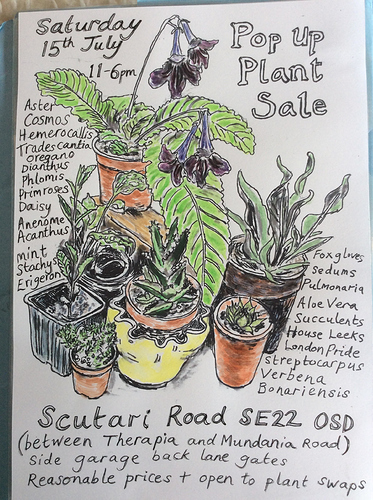 Saturday
15th July
11-6pm
Pop Up
Plant
Sale
Aster
Cosmos
Hemerocallis
Tradescantia
oregano
dianthus
Phlomis
Primroses
Daisy
Anenome
Acanthus
mint
Stachys
Erigeron
Foxgloves
sedums
Pulmonaria
Aloe Vera
Succulents
House Leeks
London Pride
streptocarpus
Verbena
Bonariensis
Scutari Road SE22 OSD
(between Therapia and Mundania Road)
Side garage back lane gates
Reasonable prices + open to plant swaps